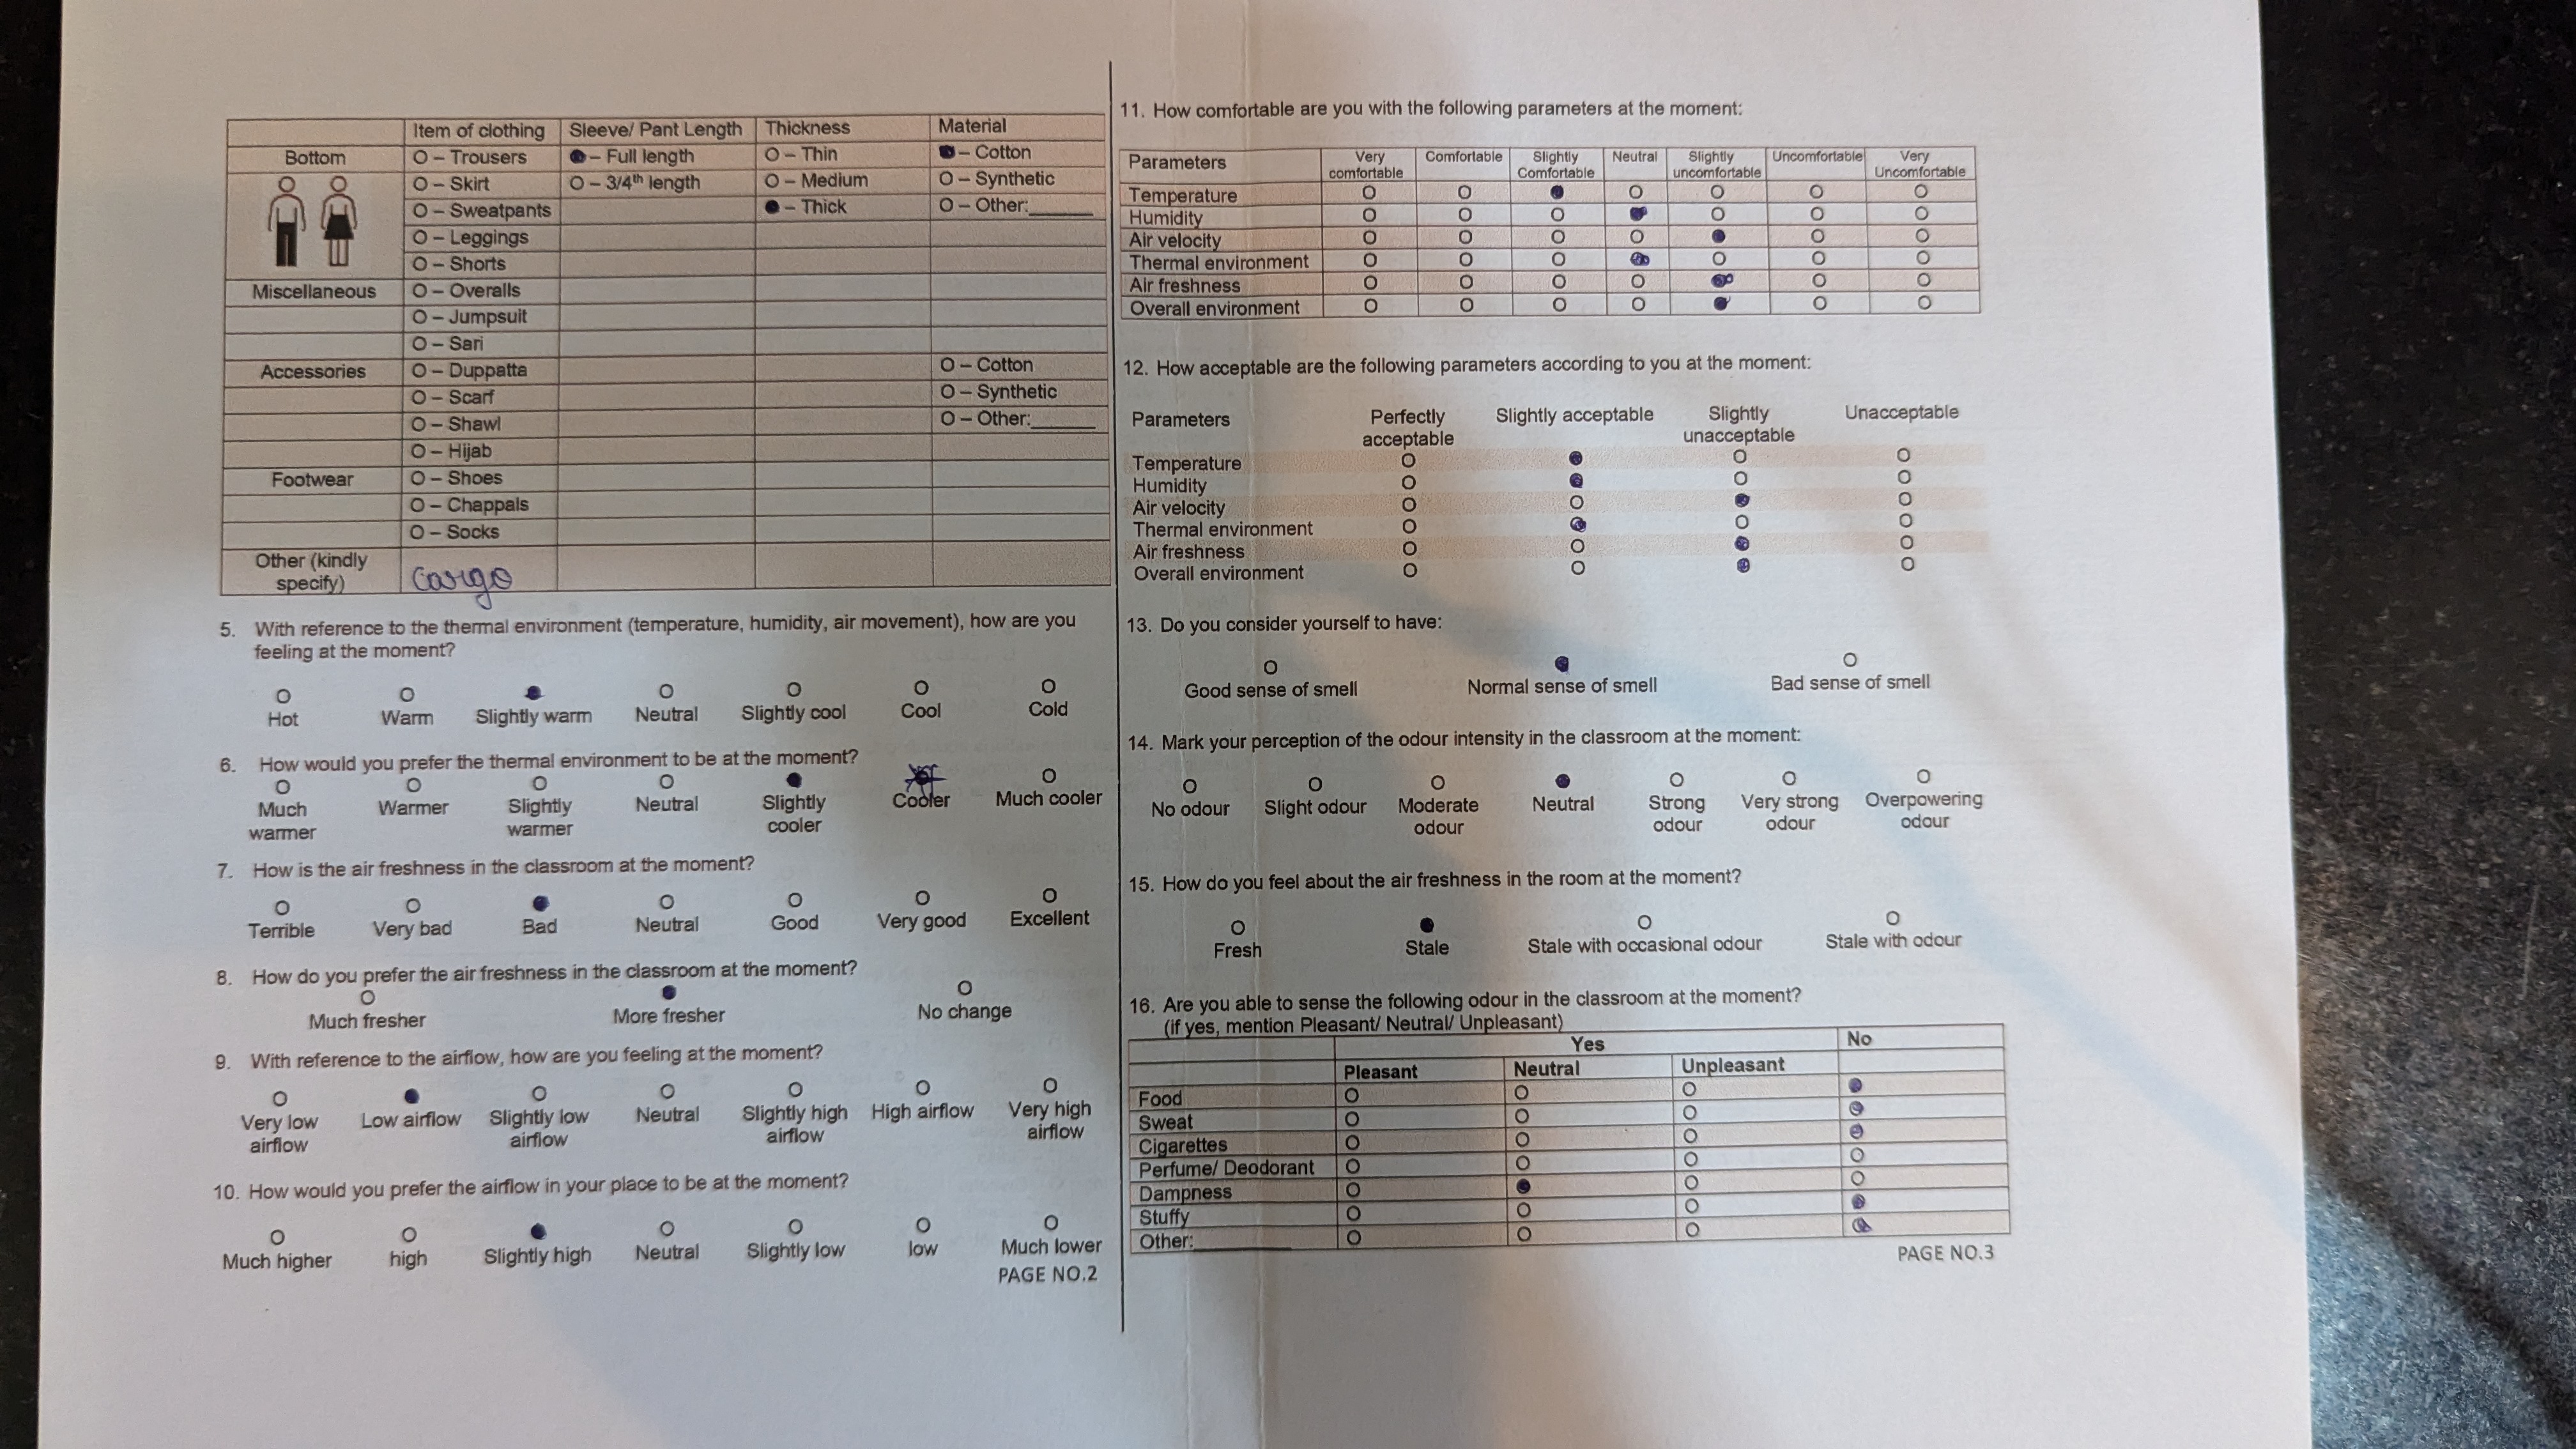 Item of clothing Sleeve/ Pant Length Thickness Material
Bottom O – Trousers ● – Full length O – Thin ● – Cotton
O – Skirt O – 3/4th length O – Medium O – Synthetic
O – Sweatpants ● – Thick O – Other:_______
O – Leggings
O – Shorts
Miscellaneous O – Overalls
O – Jumpsuit
O – Sari
Accessories O – Duppatta O – Cotton
O – Scarf O – Synthetic
O – Shawl O – Other:_______
O – Hijab
Footwear O – Shoes
O – Chappals
O – Socks
Other (kindly
specify) Cargo
5. With reference to the thermal environment (temperature, humidity, air movement), how are you
feeling at the moment?
O O ● O O O O
Hot Warm Slightly warm Neutral Slightly cool Cool Cold
6. How would you prefer the thermal environment to be at the moment?
O O O O ● O
Much Warmer Slightly Neutral Slightly Cooler Much cooler
warmer warmer cooler
7. How is the air freshness in the classroom at the moment?
O O ● O O O O
Terrible Very bad Bad Neutral Good Very good Excellent
8. How do you prefer the air freshness in the classroom at the moment?
O ● O
Much fresher More fresher No change
9. With reference to the airflow, how are you feeling at the moment?
O ● O O O O O
Very low Low airflow Slightly low Neutral Slightly high High airflow Very high
airflow airflow airflow airflow
10. How would you prefer the airflow in your place to be at the moment?
O O ● O O O O
Much higher high Slightly high Neutral Slightly low low Much lower
PAGE NO.2
11. How comfortable are you with the following parameters at the moment:
Parameters Very Comfortable Slightly Neutral Slightly Uncomfortable Very
comfortable Comfortable uncomfortable Uncomfortable
Temperature O O ● O O O O
Humidity O O O ● O O O
Air velocity O O O O ● O O
Thermal environment O O O ● O O O
Air freshness O O O O ● O O
Overall environment O O O O ● O O
12. How acceptable are the following parameters according to you at the moment:
Parameters Perfectly Slightly acceptable Slightly Unacceptable
acceptable unacceptable
Temperature O ● O O
Humidity O ● O O
Air velocity O O ● O
Thermal environment O ● O O
Air freshness O O ● O
Overall environment O O ● O
13. Do you consider yourself to have:
O ● O
Good sense of smell Normal sense of smell Bad sense of smell
14. Mark your perception of the odour intensity in the classroom at the moment:
O O O ● O O O
No odour Slight odour Moderate Neutral Strong Very strong Overpowering
odour odour odour odour
15. How do you feel about the air freshness in the room at the moment?
O ● O O
Fresh Stale Stale with occasional odour Stale with odour
16. Are you able to sense the following odour in the classroom at the moment?
(if yes, mention Pleasant/ Neutral/ Unpleasant)
Yes No
Pleasant Neutral Unpleasant
Food O O O ●
Sweat O O O ●
Cigarettes O O O ●
Perfume/ Deodorant O O O O
Dampness O ● O O
Stuffy O O O ●
Other:__________ O O O ●
PAGE NO.3